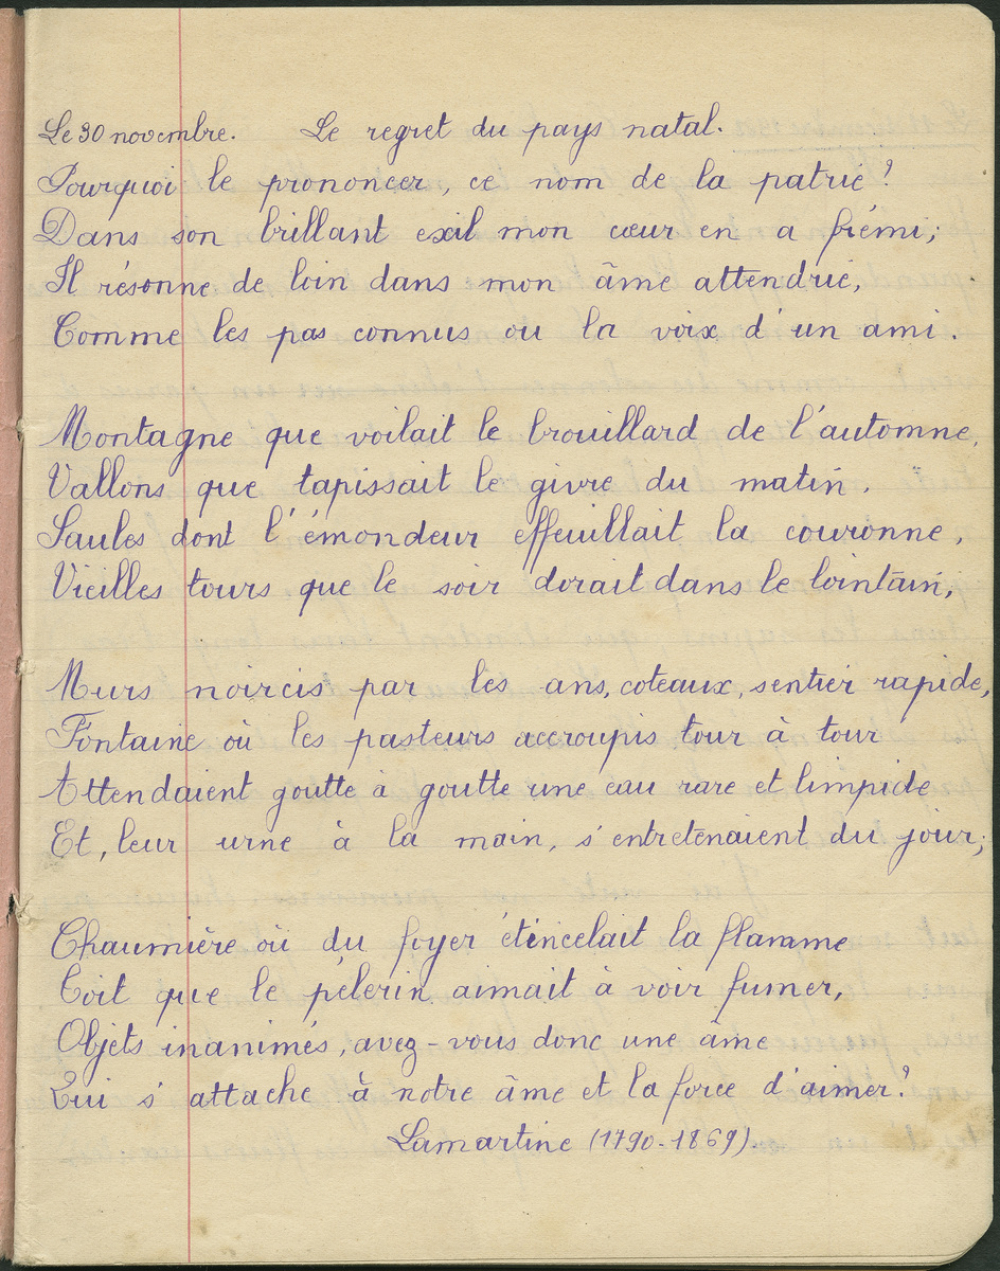 Le 30 novembre. Le regret du pays natal.
Pourquoi le prononcer, ce nom de la patrie ?
Dans son brillant exil mon cœur en a frémi;
Il résonne de loin dans mon âme attendrie,
Comme les pas connus ou la voix d'un ami.
Montagne que voilait le brouillard de l'automne,
Vallons que tapissait le givre du matin.
Saules dont l'émondeur effeuillait la couronne,
Vieilles tours que le soir dorait dans le lointain,
Murs noircis par les ans, coteaux, sentier rapide,
Fontaine où les pasteurs accroupis tour à tour
Attendaient goutte à goutte une eau rare et limpide
Et, leur urne à la main, s'entretenaient du jour;
Chaumière où du foyer étincelait la flamme
Toit que le pèlerin aimait à voir fumer,
Objets inanimés, avez-vous donc une âme
Qui s'attache à notre âme et la force d'aimer ?
Lamartine (1790-1869).